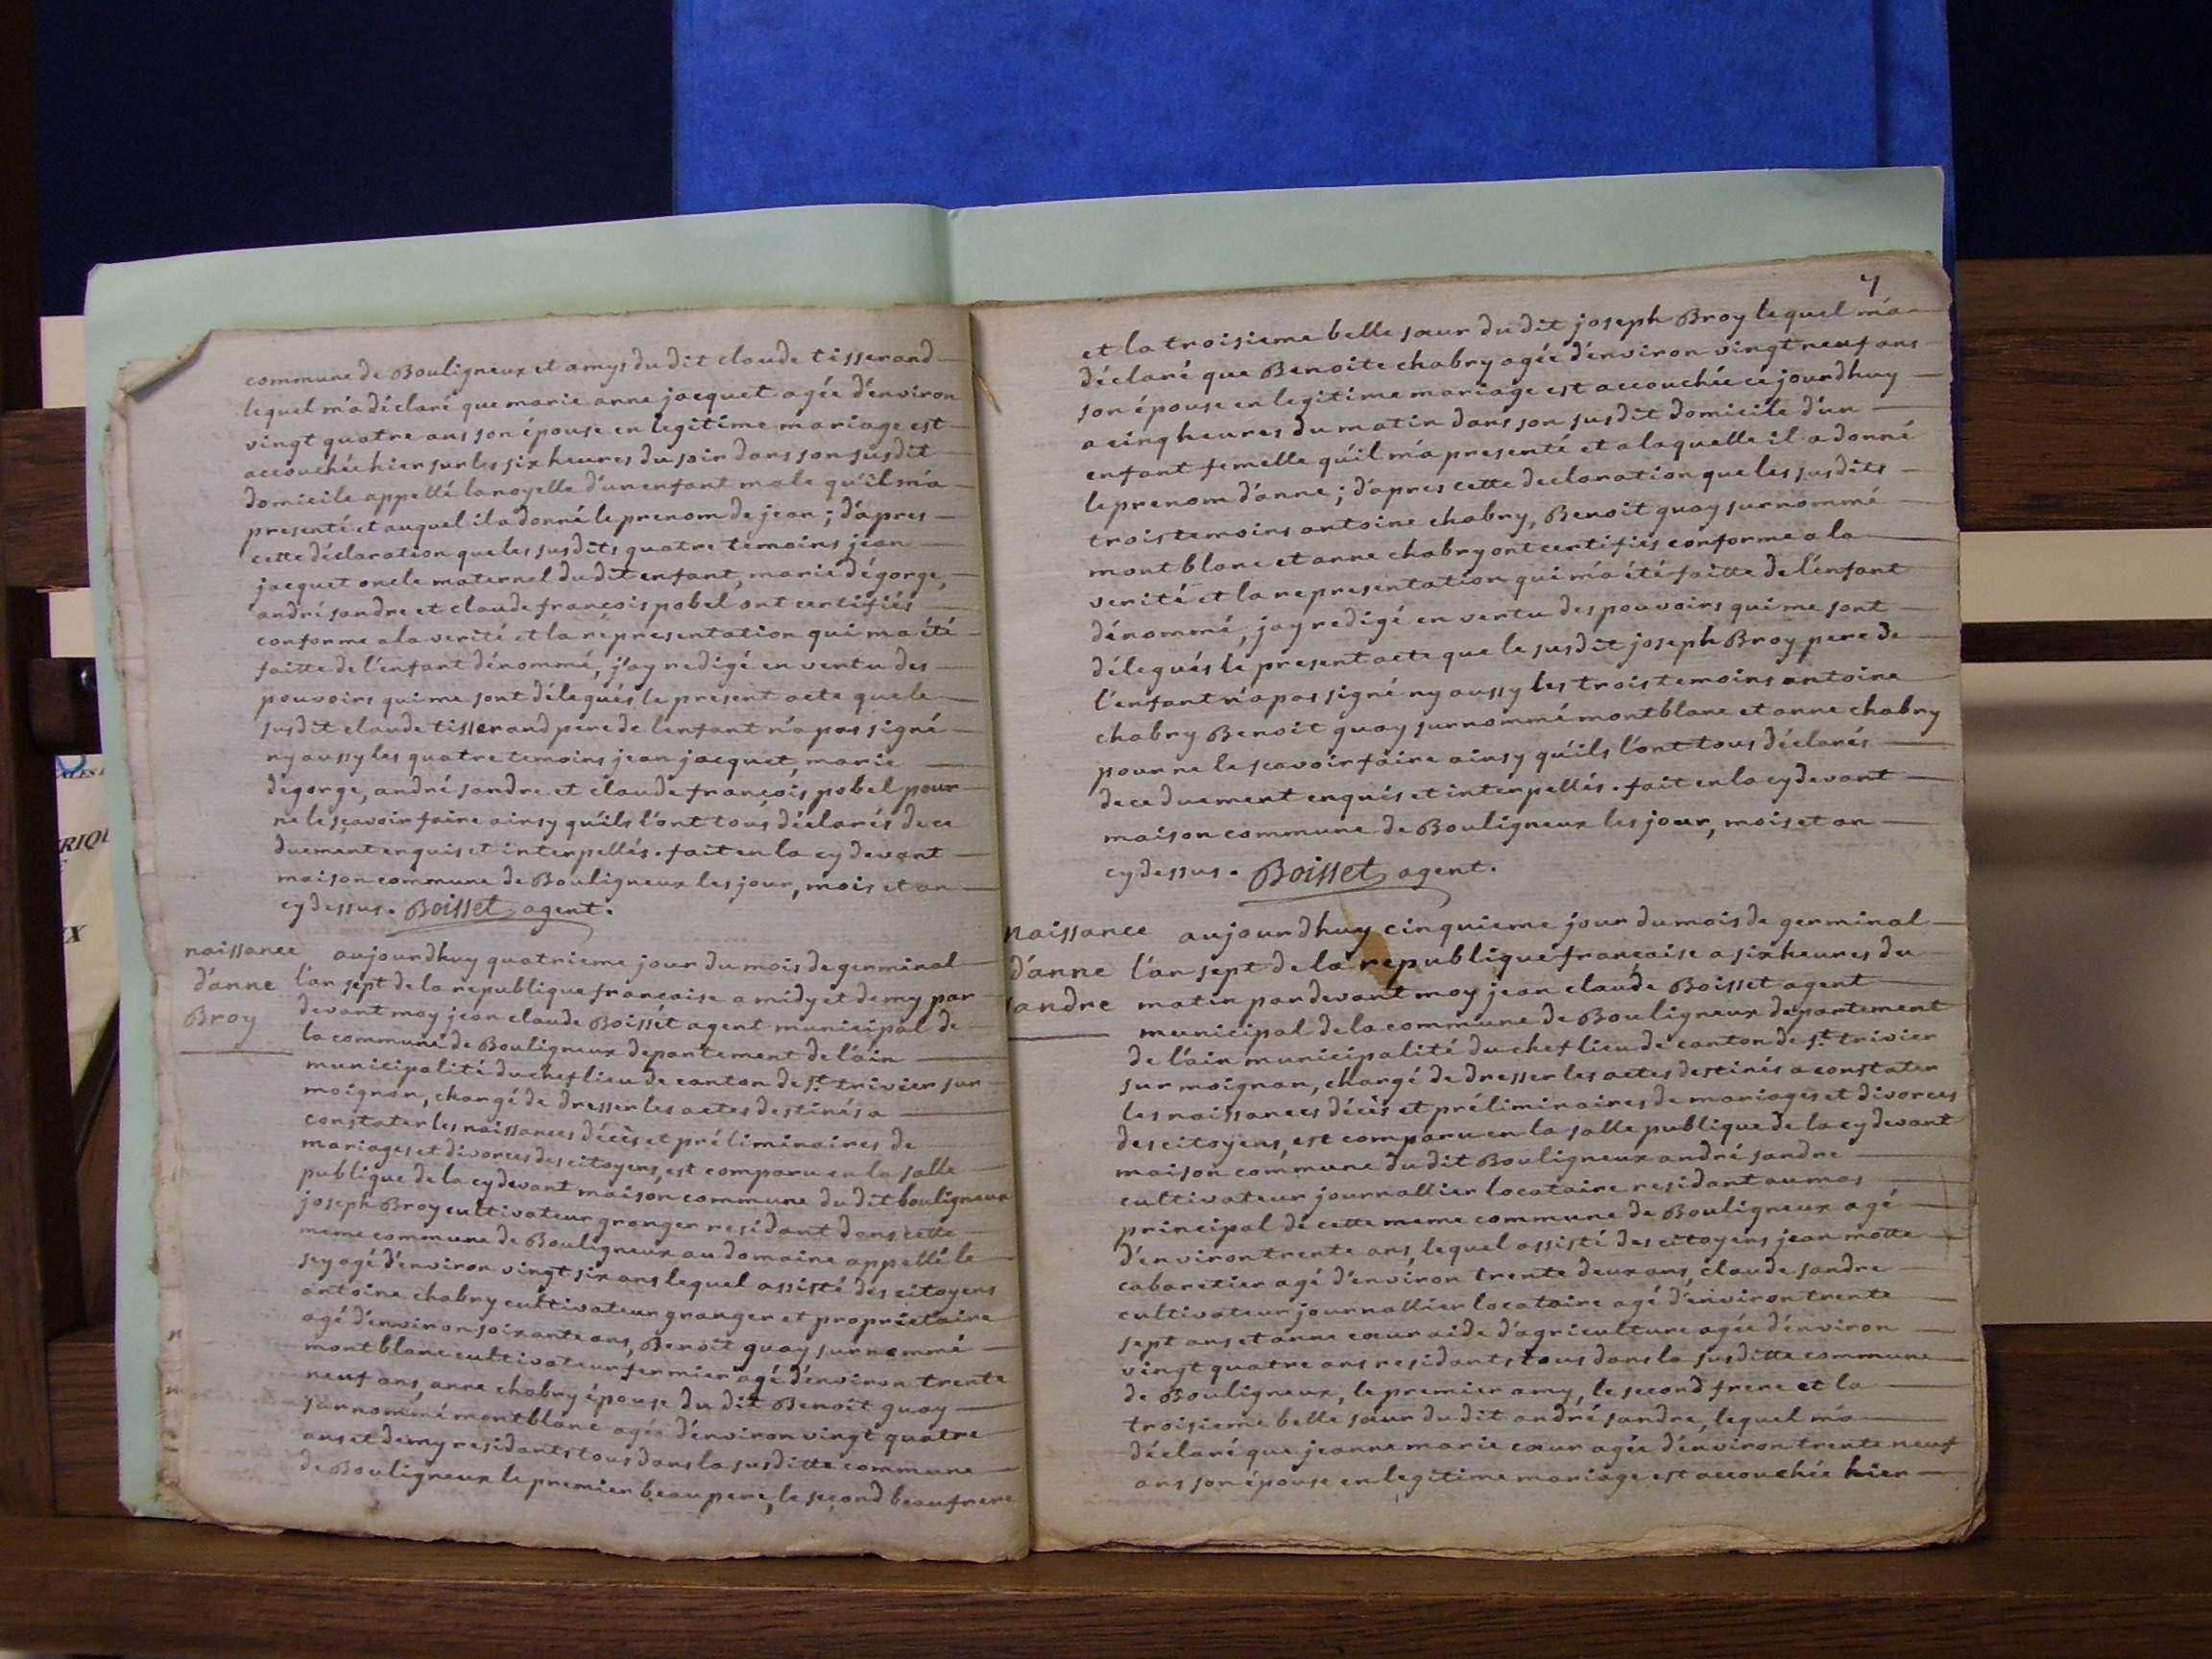 commune de Bouligneux et amys du dit claude tisserand
lequel m'a déclaré que marie anne jacquet agée d'environ
vingt quatre ans son épouse en legitime mariage est
accouchée hier sur les six heures du soir dans son susdit
domicile appellé la noyelle d'un enfant male qu'il m'a
presenté et auquel il a donné le prenom de jean ; d'apres
cette déclaration que les susdits quatre temoins jean
jacquet oncle maternel du dit enfant, marie dégorge,
andré sandre et claude françois pobel ont certifiés
conforme a la verité et la répresentation qui ma été
faitte de l'enfant dénommé, j'ay redigé en vertu des
pouvoirs qui me sont délegués le present acte que le
susdit claude tisserand pere de l'enfant n'a pas signé
ny aussy les quatre temoins jean jacquet, marie
degorge, andré sandre et claude françois pobel pour
ne le sçavoir faire ainsy qu'ils l'ont tous déclarés de ce
duement enquis et interpellés. fait en la cy devant
maison commune de Bouligneux les jour, mois et an
cy dessus. Boisset agent.
naissance
d'anne
Broy
aujourdhuy quatrieme jour du mois de germinal
l'an sept de la republique francaise a midy et demy par
devant moy jean claude Boisset agent municipal de
la commune de Bouligneux departement de l'ain
municipalité du chef lieu de canton de st. trivier sur
moignan, chargé de dresser les actes destinés a
constater les naissances décès et préliminaires de
mariages et divorces des citoyens, est comparu en la salle
publique de la cy devant maison commune du dit bouligneux
joseph Broy cultivateur granger residant dans cette
meme commune de Bouligneux au domaine appellé le
sey agé d'environ vingt six ans lequel assisté des citoyens
antoine chabry cultivateur granger et proprietaire
agé d'environ soixante ans, Benoit quay surnommé
montblanc cultivateur fermier agé d'environ trente
neuf ans, anne chabry épouse du dit Benoit quay
surnommé montblanc agée d'environ vingt quatre
ans et demy residants tous dans la susditte commune
de Bouligneux le premier beau pere, le second beaufrere
7
et la troisieme belle sœur du dit joseph Broy lequel m'a
déclaré que Benoite chabry agée d'environ vingt neuf ans
son épouse en legitime mariage est accouchée ce jourdhuy
a cinq heures du matin dans son susdit domicile d'un
enfant femelle qu'il m'a presenté et a laquelle il a donné
le prenom d'anne ; d'apres cette declaration que les susdits
trois temoins antoine chabry, Benoit quay surnommé
montblanc et anne chabry ont certifiés conforme a la
verité et la representation qui m'a été faitte de l'enfant
dénommé, jay redigé en vertu des pouvoirs qui me sont
délegués le present acte que le susdit joseph Broy pere de
l'enfant n'a pas signé ny aussy les trois temoins antoine
chabry Benoit quay surnommé montblanc et anne chabry
pour ne le scavoir faire ainsy qu'ils l'ont tous déclarés
de ce duement enquis et interpellés. fait en la cy devant
maison commune de Bouligneux les jour, mois et an
cy dessus. Boisset agent.
naissance
d'anne
sandre
aujourdhuy cinquieme jour du mois de germinal
l'an sept de la republique francaise a six heures du
matin par devant moy jean claude Boisset agent
municipal de la commune de Bouligneux departement
de l'ain municipalité du chef lieu de canton de st. trivier
sur moignan, chargé de dresser les actes destinés a constater
les naissances décès et préliminaires de mariages et divorces
des citoyens, est comparu en la salle publique de la cy devant
maison commune du dit Bouligneux andré sandre
cultivateur journallier locataire residant au mas
principal de cette meme commune de Bouligneux agé
d'environ trente ans, lequel assisté des citoyens jean motte
cabaretier agé d'environ trente deux ans, claude sandre
cultivateur journallier locataire agé d'environ trente
sept ans et anne cœur aide d'agriculture agée d'environ
vingt quatre ans residants tous dans la susditte commune
de Bouligneux, le premier amy, le second frere et la
troisieme belle sœur du dit andré sandre, lequel m'a
déclaré que jeanne marie cœur agée d'environ trente neuf
ans son épouse en legitime mariage est accouchée hier